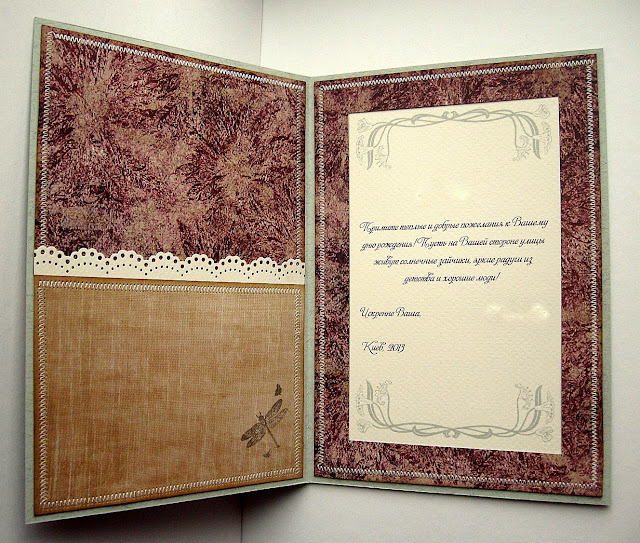 Примите теплые и добрые пожелания к Вашему
дню рождения! Пусть на Вашей стороне улицы
живут солнечные зайчики, яркие радуги из
детства и хорошие люди!
Искренне Ваша,
Киев, 2013